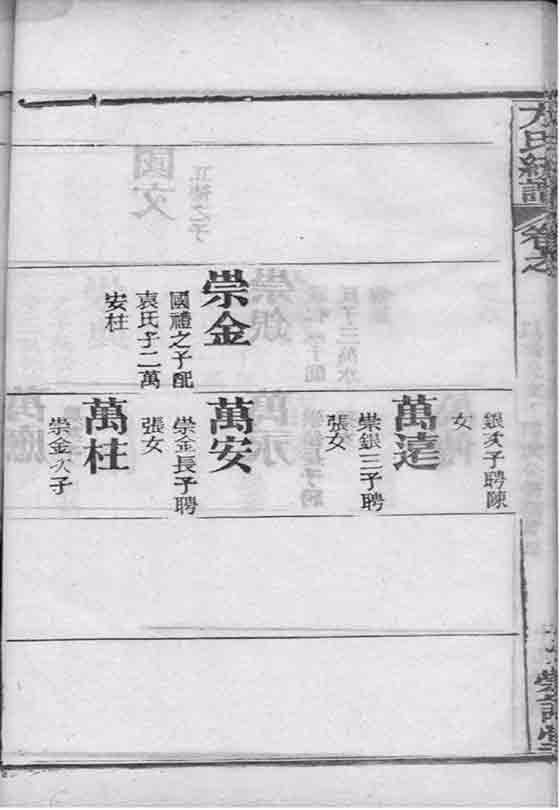 方氏統譜
卷之
崇金
國禮之子配
袁氏子二萬
安柱
銀次子聘陳
女
萬達
崇銀三子聘
張女
萬安
崇金長子聘
張女
萬柱
崇金次子